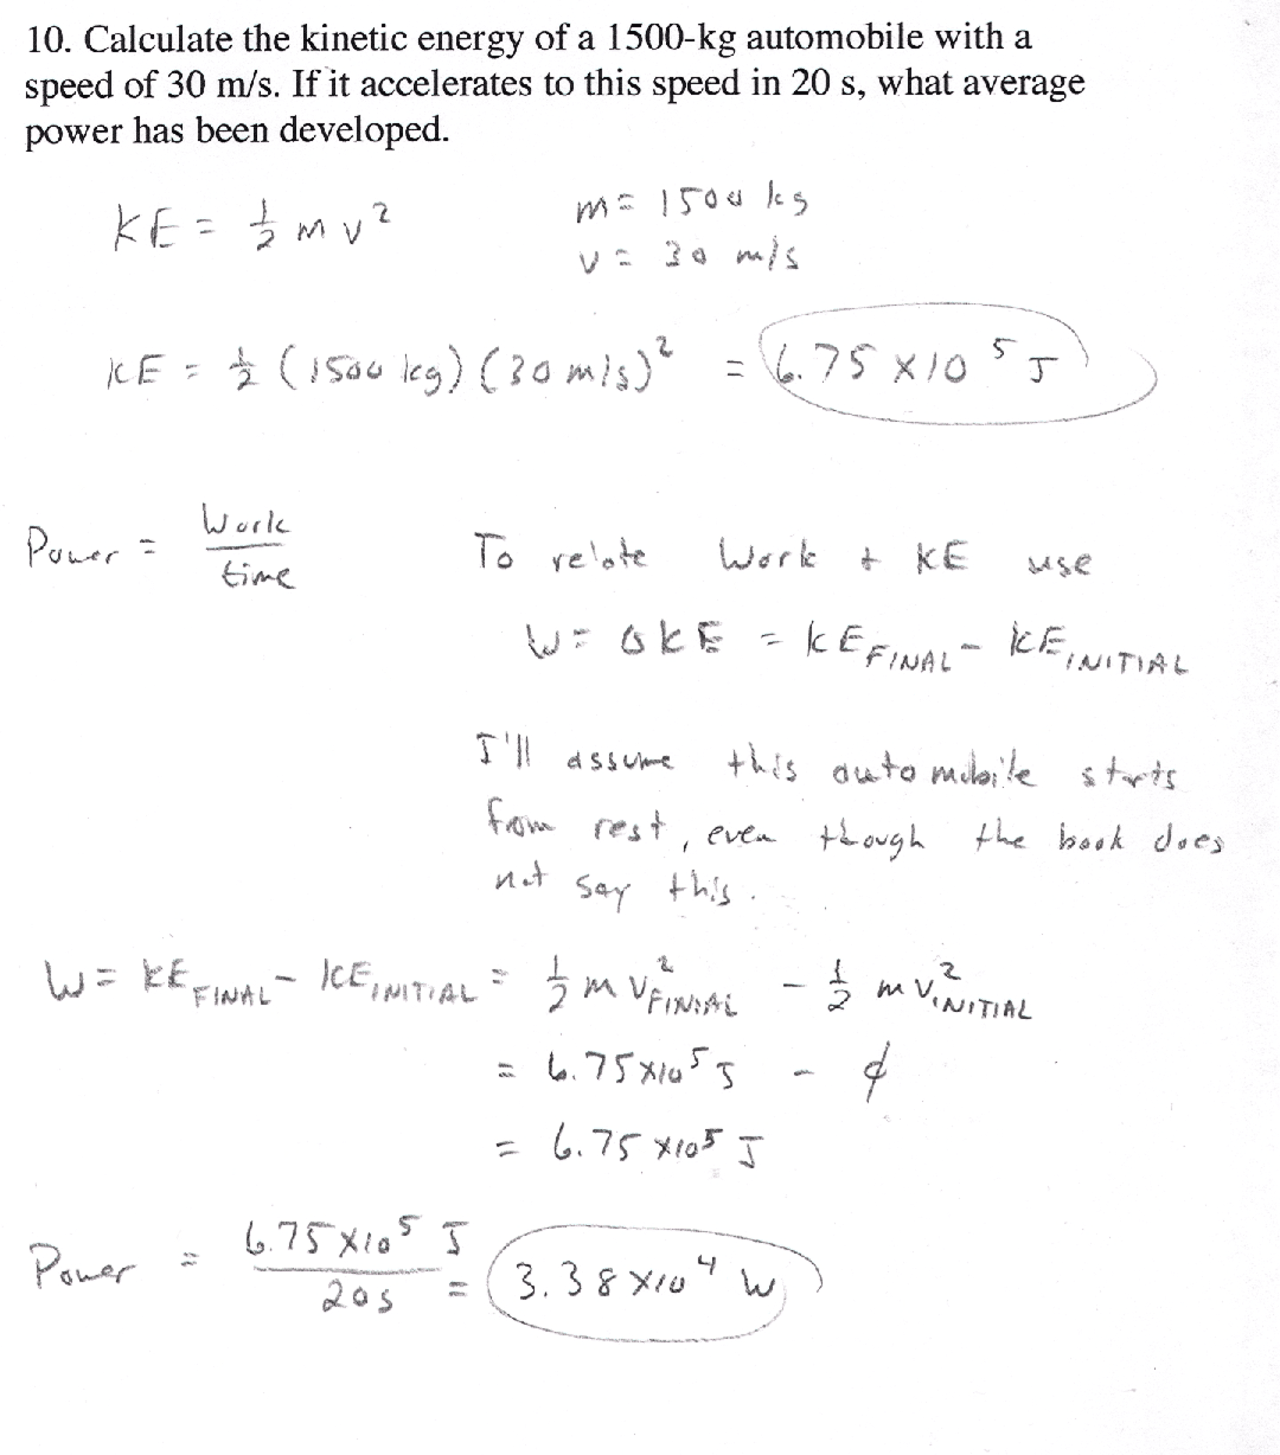 10. Calculate the kinetic energy of a 1500-kg automobile with a
speed of 30 m/s. If it accelerates to this speed in 20 s, what average
power has been developed.
KE = 1/2 m v²
m = 1500 kg
v = 30 m/s
KE = 1/2 (1500 kg) (30 m/s)² = 6.75 x10⁵ J
Power = Work/time
To relate Work + KE use
W = ΔKE = KE FINAL - KE INITIAL
I'll assume this automobile starts
from rest, even though the book does
not say this.
W = KE FINAL - KE INITIAL = 1/2 m v² FINAL - 1/2 m v² INITIAL
= 6.75 x10⁵ J - ϕ
= 6.75 x10⁵ J
Power = 6.75 x10⁵ J / 20 s = 3.38 x10⁴ W